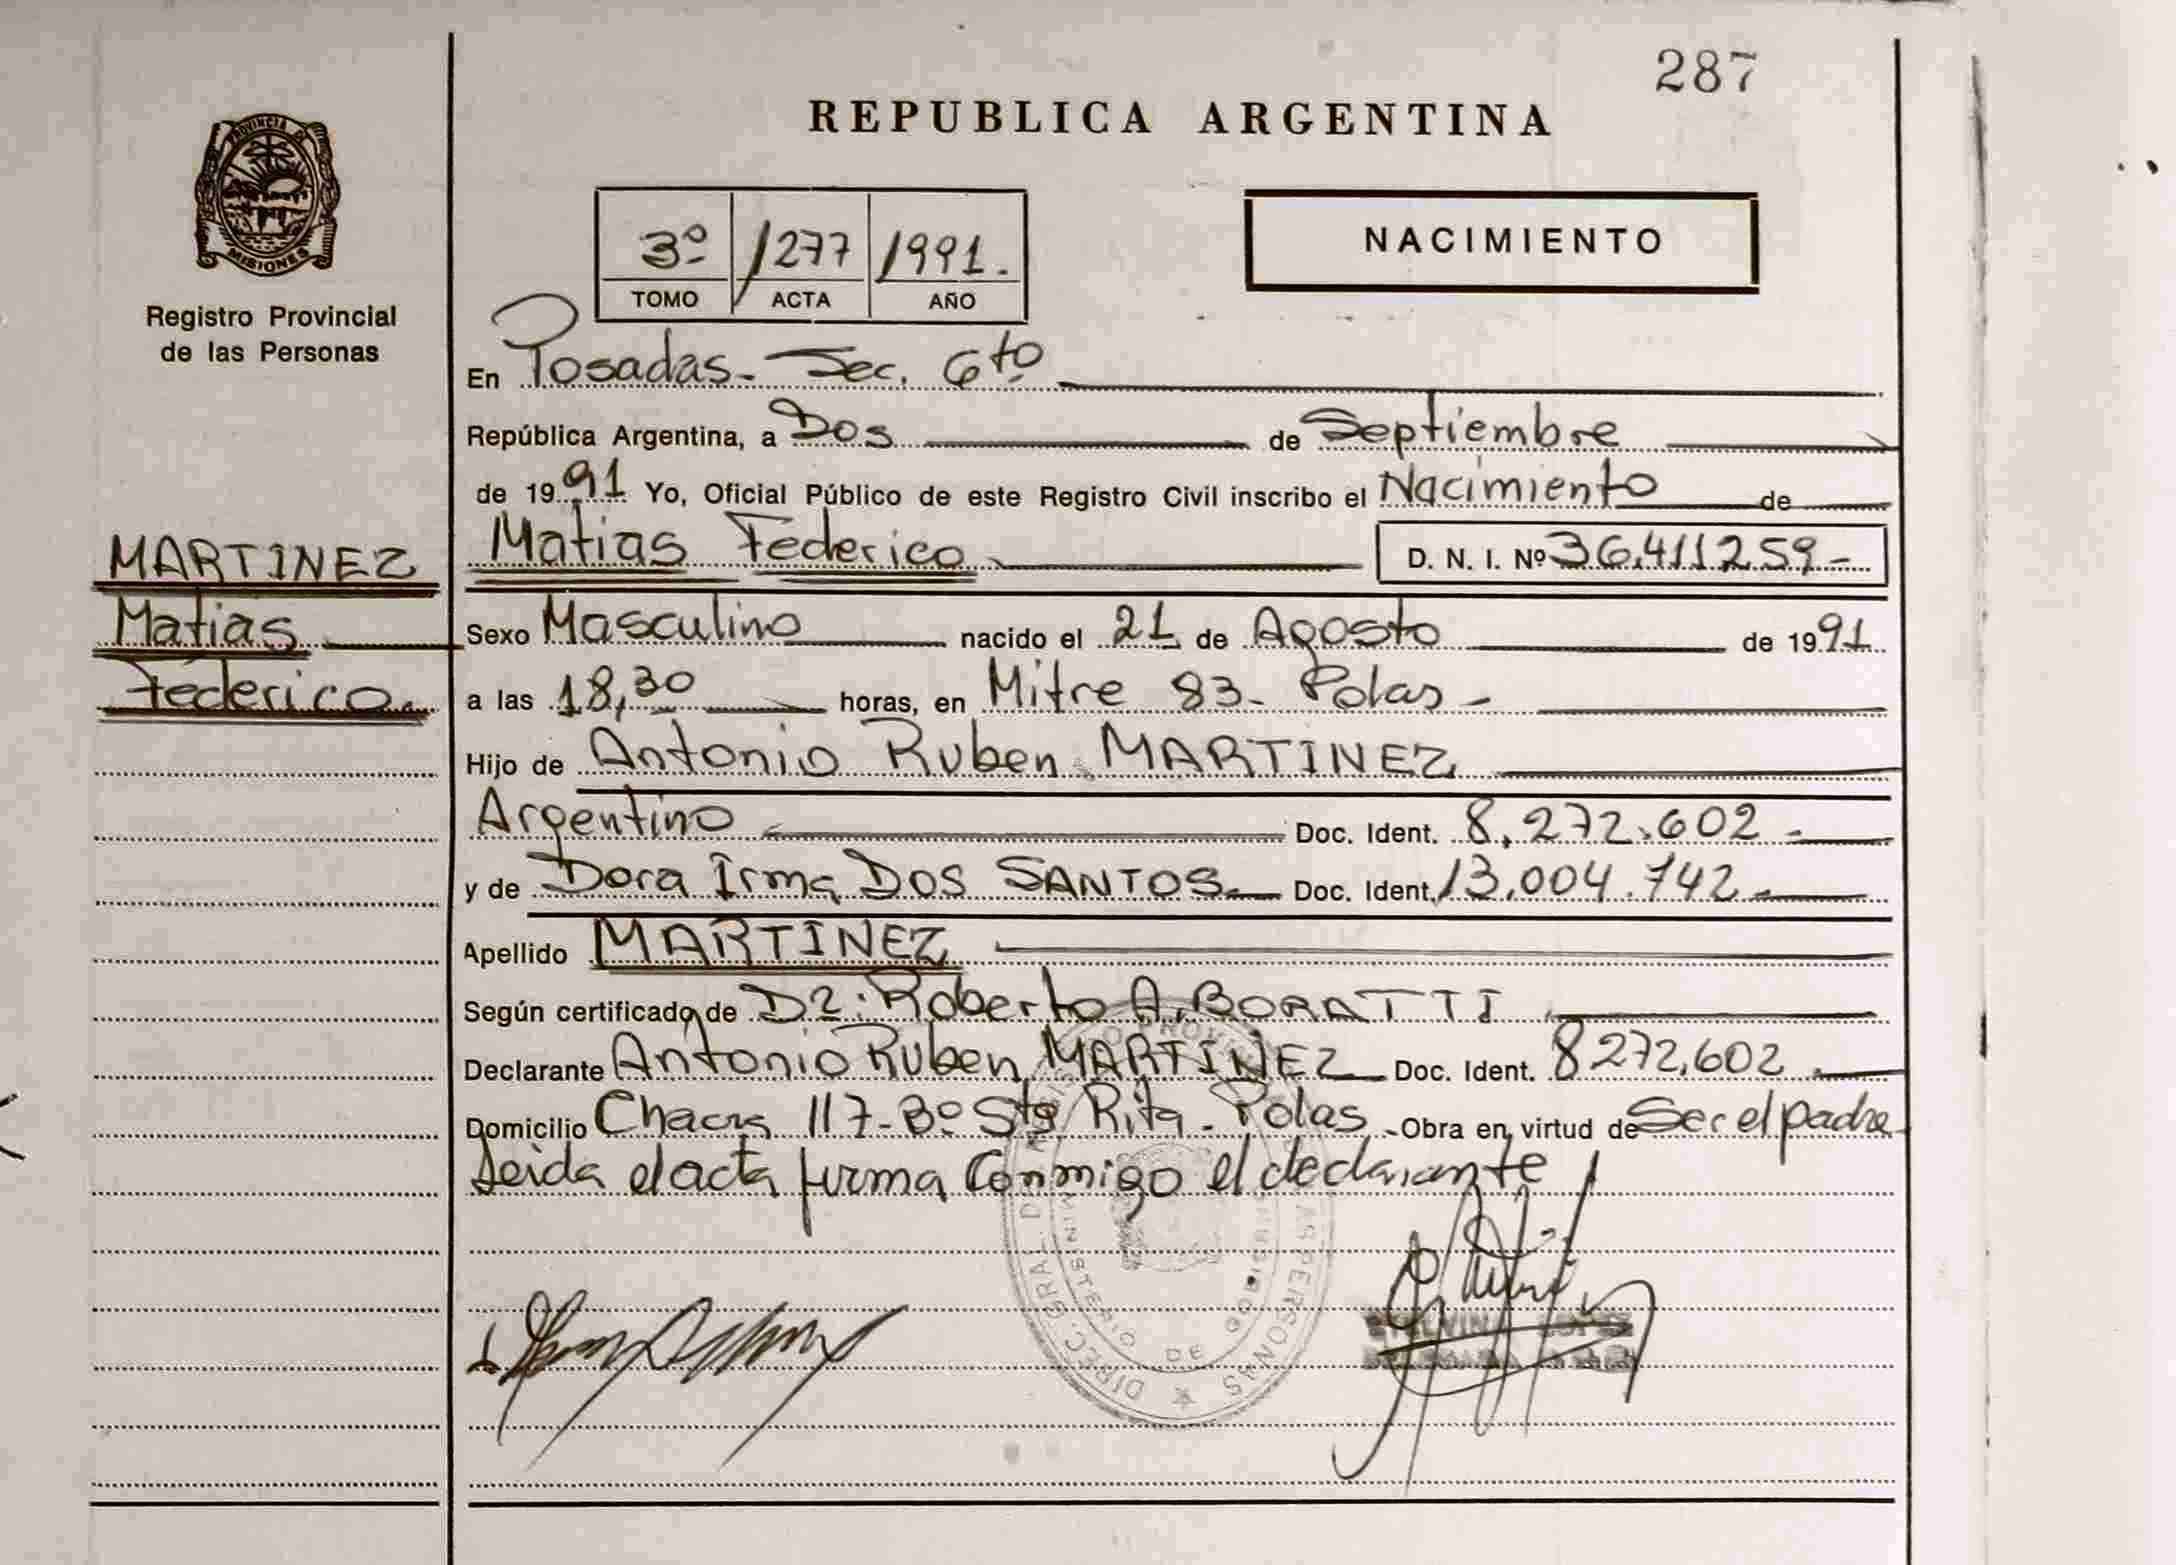 287
REPUBLICA ARGENTINA
PROVINCIA DE MISIONES
3º /277 /1991.
TOMO ACTA AÑO
NACIMIENTO
Registro Provincial
de las Personas
En Posadas - Sec. 6to
República Argentina, a Dos de Septiembre
de 1991 Yo, Oficial Público de este Registro Civil inscribo el Nacimiento de
MARTINEZ
Matias
Federico
Matias Federico D. N. I. Nº 36,411259-
Sexo Masculino nacido el 21 de Agosto de 1991
a las 18,30 horas, en Mitre 83 - Pdas -
Hijo de Antonio Ruben MARTINEZ
Argentino Doc. Ident. 8,272.602-
y de Dora Irma DOS SANTOS Doc. Ident. 13,004.742-
Apellido MARTINEZ
Según certificado de Dr. Roberto A. BORATTI
Declarante Antonio Ruben MARTINEZ Doc. Ident. 8272,602
Domicilio Chacra 117 - Bº Sta Rita - Pdas - Obra en virtud de Ser el padre
Leida el acta firma conmigo el declarante
DIREC. GRAL. DEL PERSONAS
MINISTERIO DE GOBIERNO